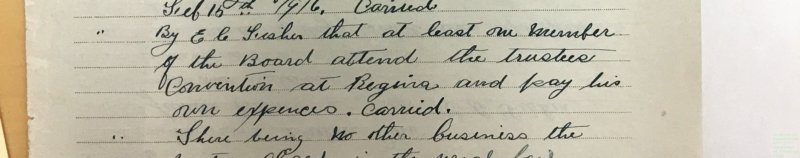 Feb 15th 1916. Carried
" By E C Fisher that at least one member
of the Board attend the trustees
Convention at Regina and pay his
own expences. Carried.
" There being no other business the